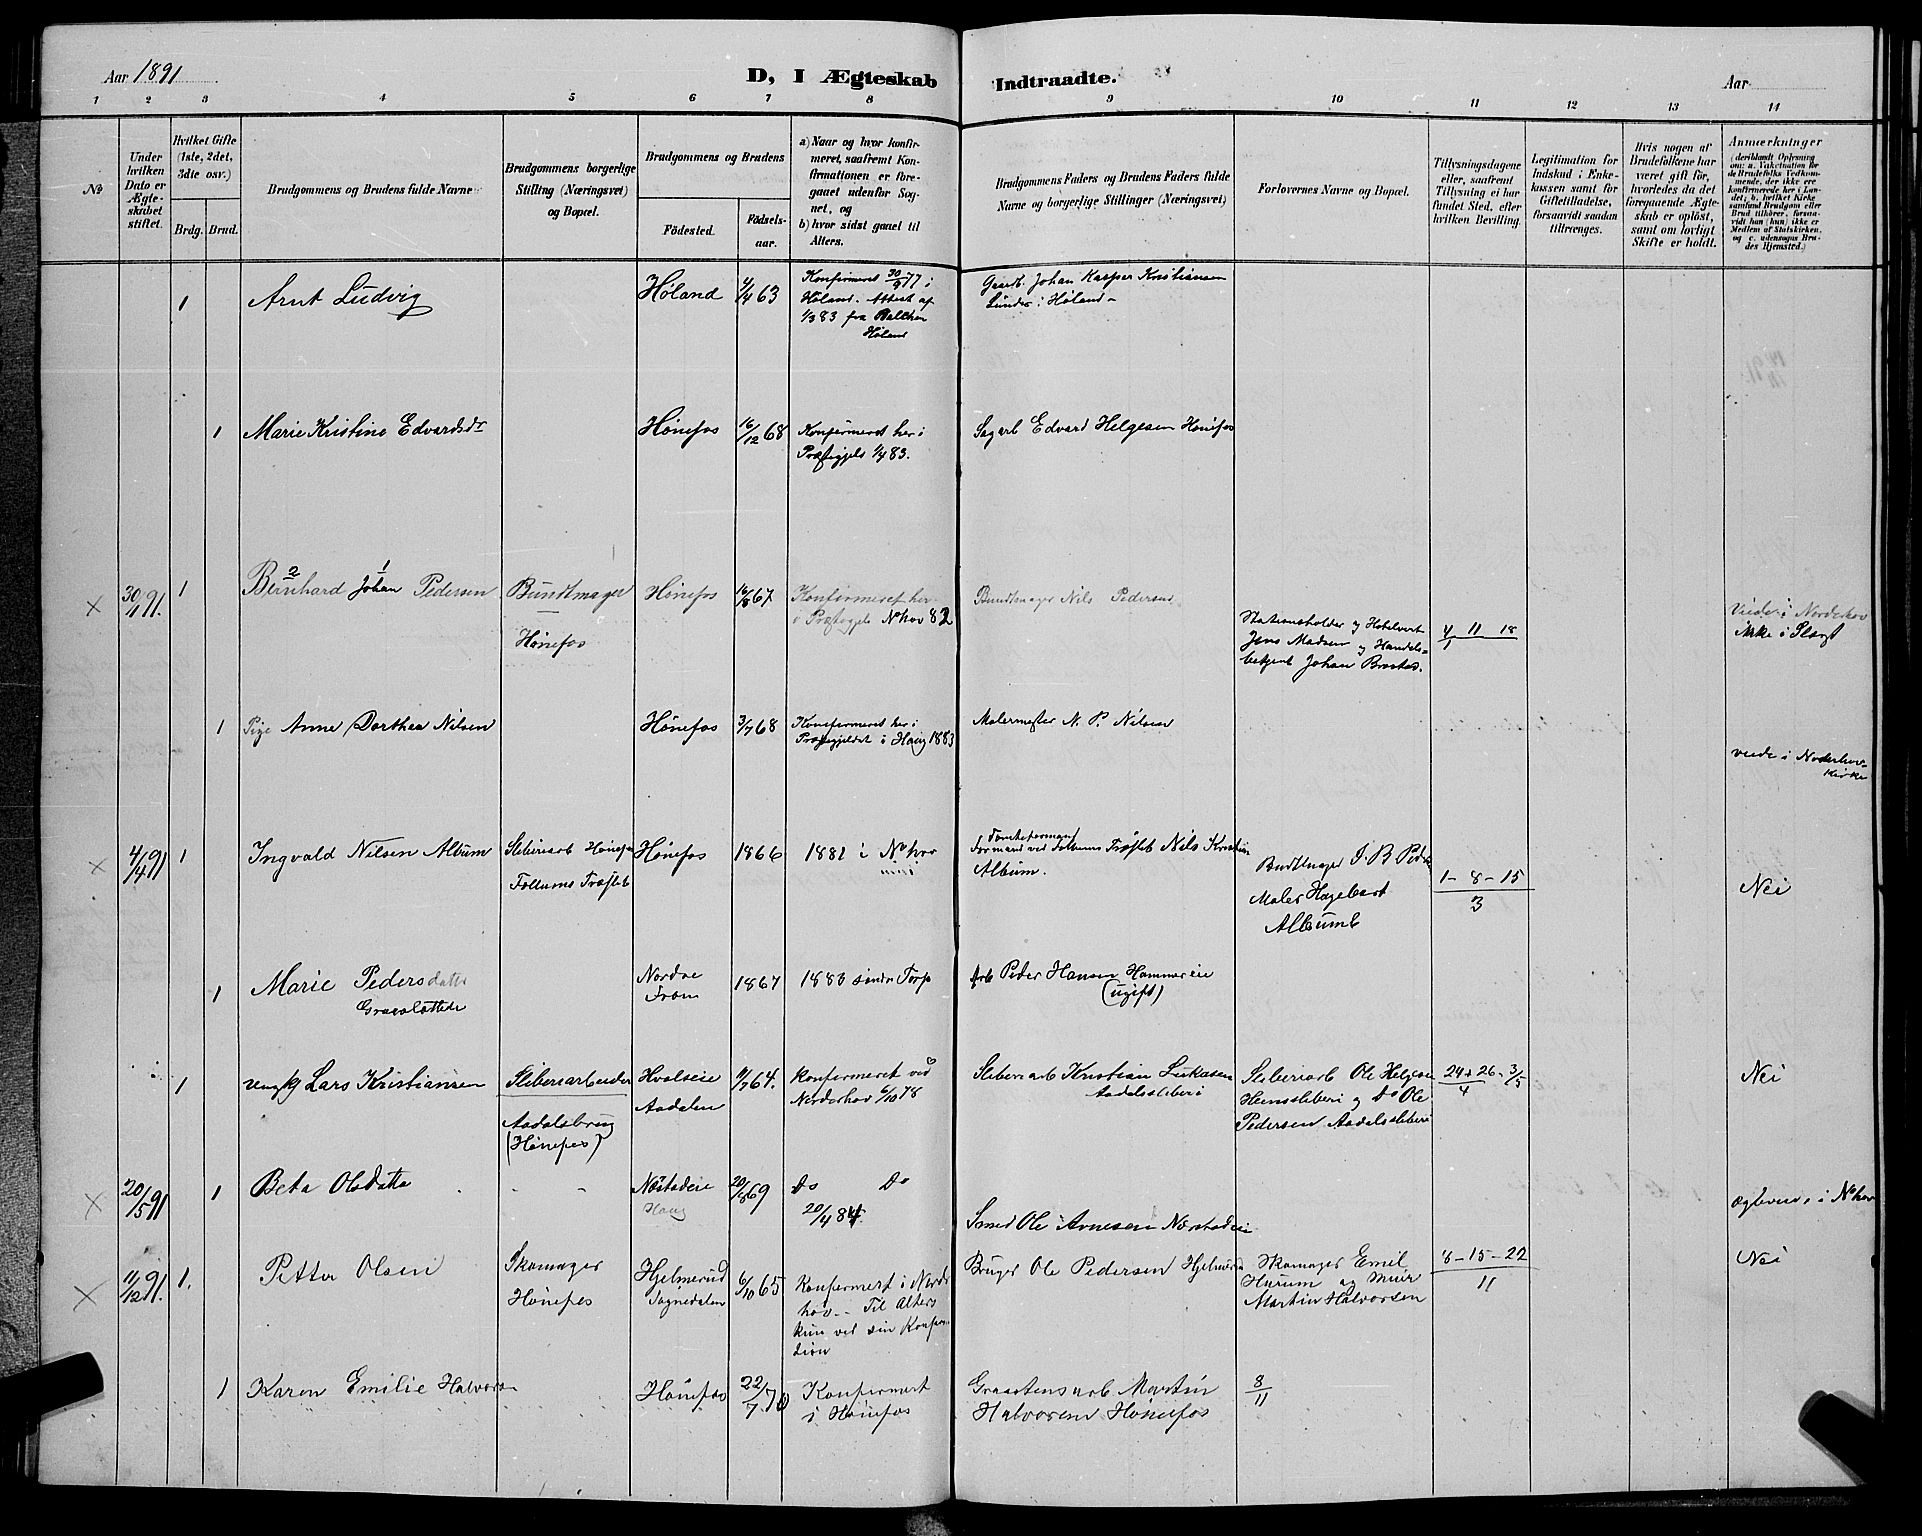 Aar 1891
D, I Ægteskab Indtraadte.
Aar
1 2 3 4 5 6 7 8 9 10 11 12 13 14
No
Under hvilken Dato er Ægteskabet stiftet.
Hvilket Gifte (1ste, 2det, 3die osv.)
Brdg. Brud.
Brudgommens og Brudens fulde Navne
Brudgommens borgerlige Stilling (Næringsvei) og Bopæl.
Brudgommens og Brudens
Fødested.
Fødselsaar.
a) Naar og hvor konfirmeret, saafremt Konfirmationen er foregaaet udenfor Sognet, og
b) hvor sidst gaaet til Alters.
Brudgommens Faders og Brudens Faders fulde Navne og borgerlige Stillinger (Næringsvei)
Forlovernes Navne og Bopæl.
Tillysningsdagene eller, saafremt Tillysning ei har fundet Sted, efter hvilken Bevilling.
Legitimation for Indskud i Enkekassen samt for Giftetilladelse, forsaavidt saadan tiltrænges.
Hvis nogen af Brudefolkene har været gift før, hvorledes da det foregaaende Ægteskab er opløst, samt om lovligt Skifte er holdt.
Anmærkninger
(deriblandt Oplysning om: a. Vakcination for de Brudefolks Vedkommende, der ikke ere konfirmerede her i Landet; b. hvilket Kirkesamfund Brudgom eller Brud tilhører, forsaavidt han (hun) ikke er Medlem af Statskirken, og c. udensogns Brudes Hjemsted.)
1 Arnt Ludvig
Høland 4/4 63
Konfirmeret 30/9 77 i
Høland. Attest af
1/3 83 fra
Høland
Gaardb. Johan Kasper Kristiansen
Lunder i Høland
1 Marie Kristine Edvardsdr
Hønefos 16/12 68
Konfirmeret her i
Præstegjeld 1/4 83.
Sagarb Edvard Helgesen Hønefos
x 30/1 91. 1
2 1
Bernhard Johan Pedersen
Bundtmager
Hønefos
Hønefos 16/8 67
Konfirmeret her
i Præstegjeld N hov 82
Bundtmager Nils Pedersen
Stationsholder og Hotelvert
Jens Madsen og Handels-
betjent Johan
4 11 18
1
Viede i Norderhov
Kirke i
1 Pige Anne Dorthea Nilsen
Hønefos 3/7 68
Konfirmeret her i
Præstegjeldet i Haug 1883
Malermester N. P. Nilsen
viede i Norderhov
Kirke
x 4/4 91 1 Ingvald Nilsen Album
Sliberiarb Hønefos
Follums Træslib
Hønefos 1866
1881 i N hov
Tomteformand
Formand ved Follums Træslib Nils Kristian
Album.
Bundtmager J. B. Peders
Maler Hagebart
Album
1 - 8 - 15
3
Nei
1 Marie Pedersdatter
Nordre
Fron
1867
1883 søndre Torp
Arb Peder Hansen Hammereie
(ugift)
1 ungkg Lars Kristiansen
Sliberiarbeider
Aadalsbrug
(Hønefos)
Hvalseie
Aadalen
11/7 64.
Konfirmeret ved
Norderhov 6/10 78
Sliberiarb Kristian Lukasen
Aadalssliberi
Sliberiarb Ole Helgesen
Heenssliberi og Do Ole
Pedersen Aadalssliberi
24 + 26 - 3/5
4
Nei
x 20/5 91 1 Beta Olsdatter - -
Næstadeie
Haug
20/8 69
Do Do
20/4 84
Smed Ole Arnesen Næstadeie
ægteviede i N hov
x 11/12 91. 1. Petter Olsen
Skomager
Hønefos
Hjelmerud
Sognedalen
6/10 65
Konfirmert i Norder
hov. - Til Alters
kun ved sin Konfirma
tion
Bruger Ole Pedersen Hjelmerud
Skomager Emil
Hurum og Murer
Martin Halvorsen
8 - 15 - 22
11
Nei
1 Karen Emilie Halvors
Hønefos 22/7 70
Konfirmert
i Hønefos
Graastensarb Martin
Halvorsen Hønefos
8/11